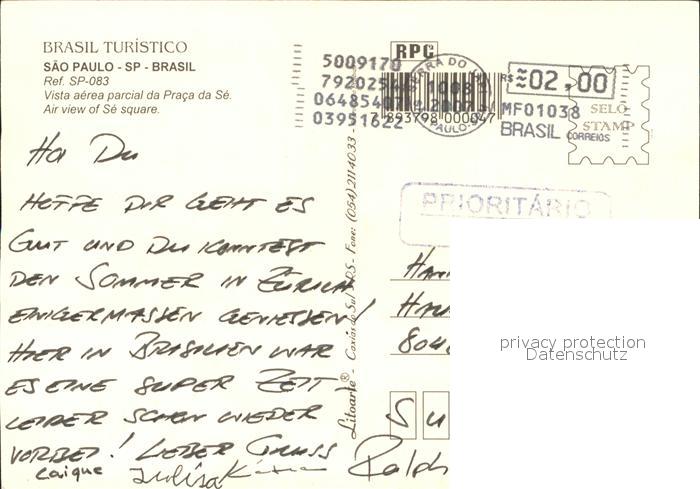 BRASIL TURÍSTICO
SÃO PAULO - SP - BRASIL
Ref. SP-083
Vista aérea parcial da Praça da Sé.
Air view of Sé square.
Hoi Du
HOFFE DIR GEHT ES
GUT UND DU KONNTEST
DEN SOMMER IN ZÜRICH
EINIGERMASSEN GENIESSEN!
HIER IN BRASILIEN WAR
ES EINE SUPER ZEIT
LEIDER SCHON WIEDER
VORBEI! LIEBER GRUSS
Caique Julisa Ralph
Litoarte® - Caxias do Sul - RS - Fone: (054) 211.40.33 -
RPC
5009170
7920254
06485407
03951622
7 893798 000047
R$ 02,00
MF01038
BRASIL CORREIOS
SELO
STAMP
PRIORITÁRIO
804
SU
privacy protection
Datenschutz